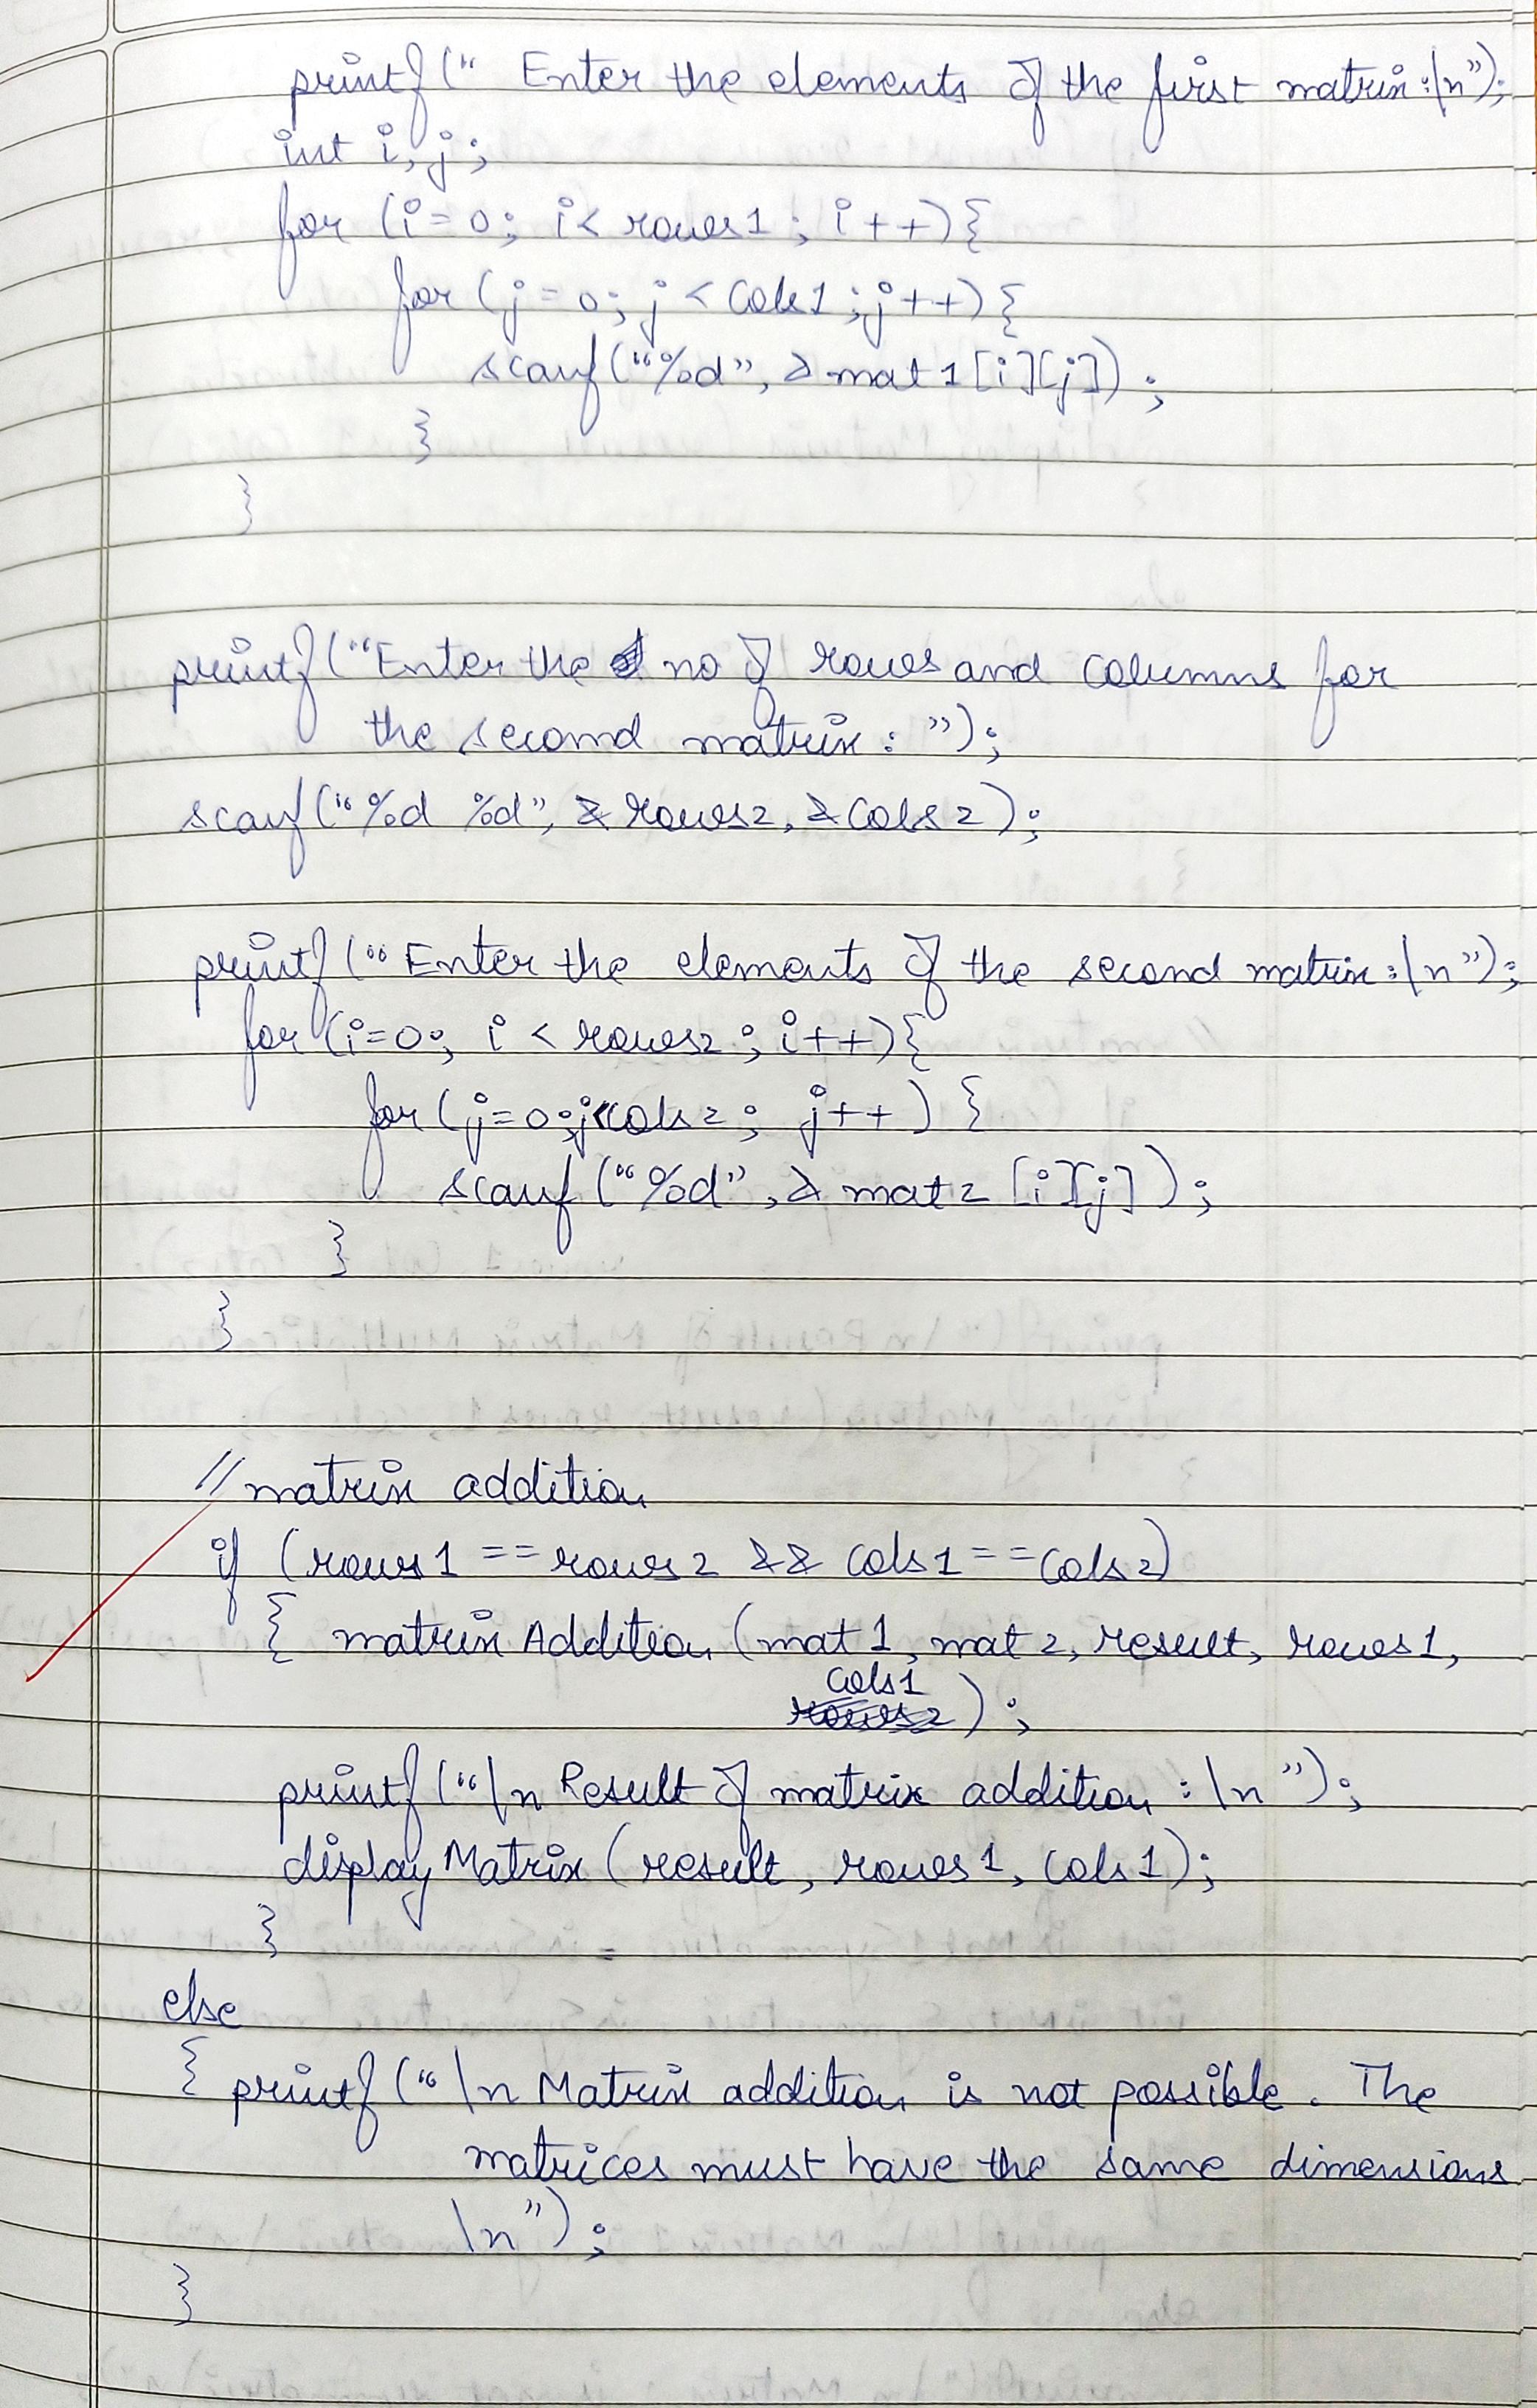 printf(" Enter the elements of the first matrix:\n");
int i, j;
for (i=0; i< rows1; i++){
for (j=0; j < cols1; j++){
scanf("%d", &mat1[i][j]);
}
}
printf("Enter the no of rows and columns for
the second matrix: ");
scanf("%d %d", &rows2, &cols2);
printf("Enter the elements of the second matrix:\n");
for (i=0; i < rows2; i++){
for (j=0; j<cols2; j++) {
scanf("%d", &mat2[i][j]);
}
}
//matrix addition
if (rows1 == rows2 && cols1 == cols2)
{ matrixAddition (mat1, mat2, result, rows1,
cols1
);
printf("\n Result of matrix addition :\n");
displayMatrix(result, rows1, cols1);
}
else
{ printf("\n Matrix addition is not possible. The
matrices must have the same dimensions
\n");
}